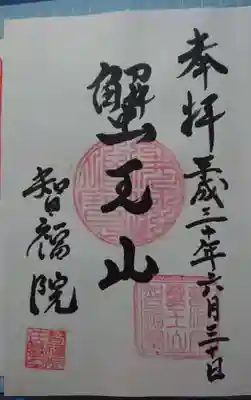 奉拝 平成三十年六月三十日
蟹王山
智福院